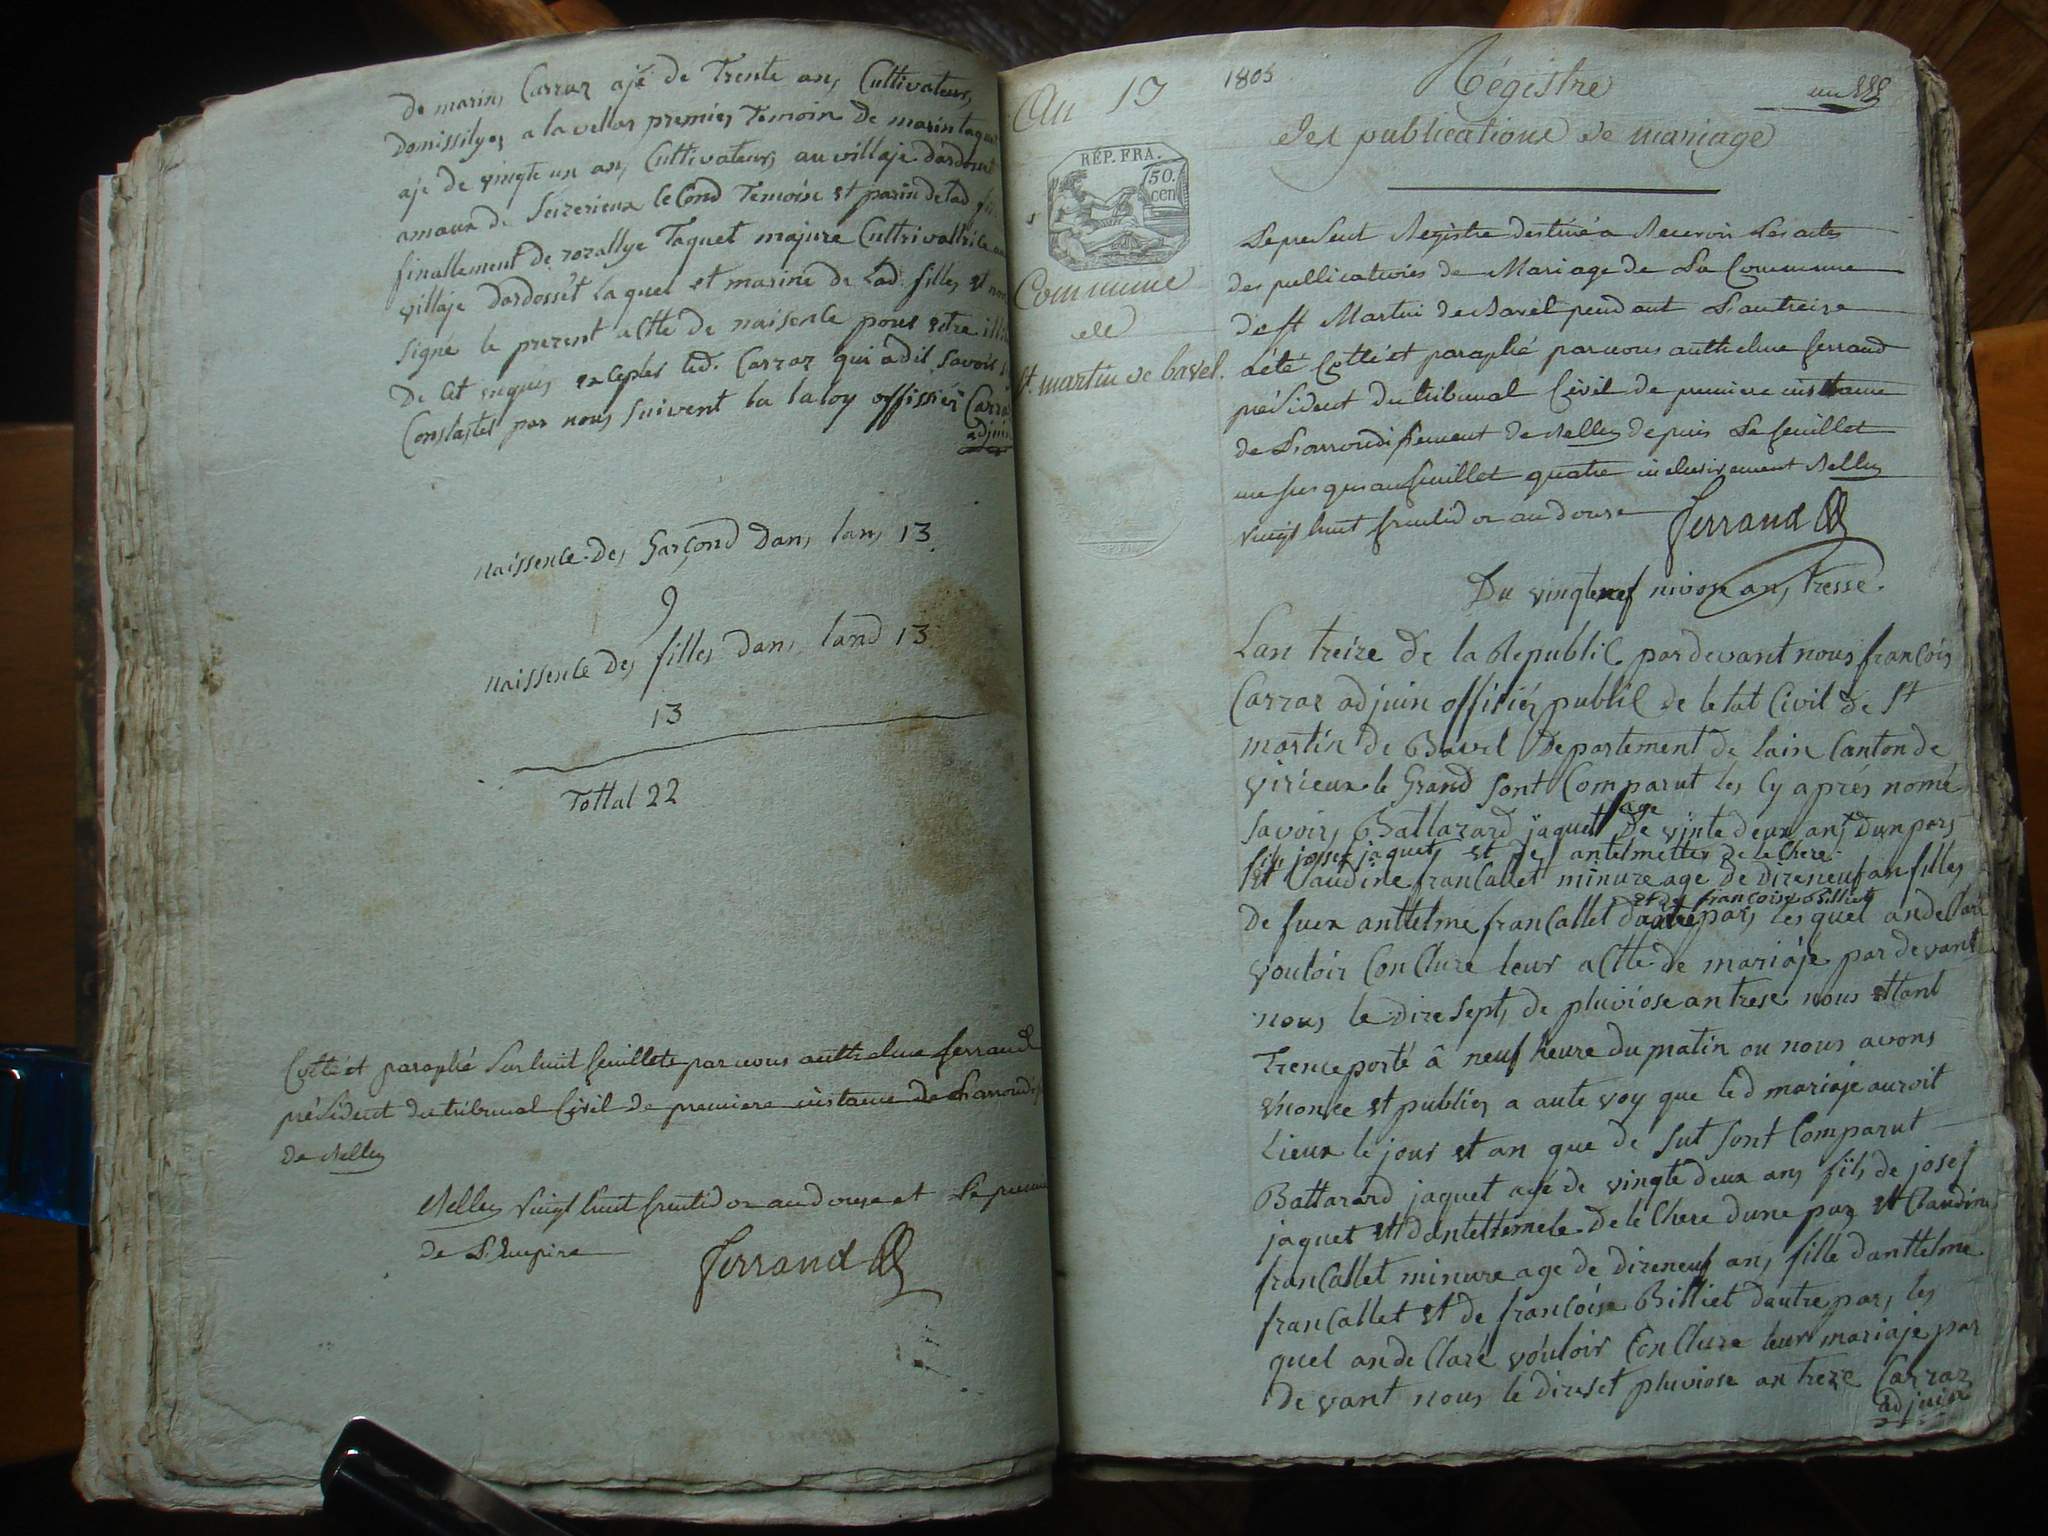 de marin Carraz ajé de Trente an, Cultivateur,
domissilyez a la vellaz premiez Temoin de marin Jaquet
aje de vingte un an, Cultivateur, au villaje dardosset
second Temoise et parin de lad
finallement de rozallye Jaquet majure Cultrivattrice au
villaje dardossét laquel et marine de Lad. filles et
signé le prezent actte de naisence pour
De cet requis exceptez led. Carraz qui a dit savoir
Constastés par nous suivent la laloy offissiér Carraz
adjuin
naissence des Garçond Dans lan, 13.
9
naissence des filles Dans land 13
13
Tottal 22
Cotté et paraphé sur huit feuillets par nous anthelme ferrand
président du tribunal Civil de premiere instance de L'arrondis
de Belley
Belley vingt huit fructidor an douze et Le premier
de L'Empire
ferrand
An 13
1805
Régistre
un
des publications de mariage
RÉP. FRA.
50.
cen
Commune
de
St. martin de bavel.
Le present Registre destiné a Recevoir Les actes
des publications de Mariage de La Commune
de St Martin de Bavel pendant L'an treize
a été Cotté et paraphé par nous anthelme ferrand
président du tribunal Civil de premiere instance
de L'arrondissement de Belley depuis Le feuillet
un jusques au feuillet quatre inclusivement Belley
vingt huit fructidor an douze ferrand
Du vingtenef nivose an, tresse.
Lan treize de la Republic par devant nous françois
Carraz adjuin offisiéz publil de letat Civil de St
martin de Bavel Departement de lain Canton de
virieux le Grand sont Comparut les Cy aprés nomé
savoir, Baltazard jaquet age De vinte deux ans dun pars
fils josset jaquet et de antelmettes de le Chere
et Claudine francallet minure age de dizeneuf an filles
De fuex anttelme francallet et de françoise Billiet dautre pars lesquel andeClaré
vouloir ConClure leur actte de mariaje par devant
nous le dizesept, de pluviose an trese nous ettant
Trenceporté â neuf heure Du matin ou nous avons
enonce et publiez a aute voy que led mariaje auroit
Lieux le jour et an que de sut sont Comparut
Battazard jaquet agé de vingte deux ans fils de josef
jaquet et dantettemele De le Chere dune par et Claudine
franCallet minure age de dizeneuf an, fille danttelme
franCallet et de françoise Billiet dautre par, les
quel andeClaré vouloir ConClure leur mariaje par
de vant nous le dizeset pluviose an treze Carraz
adjuin